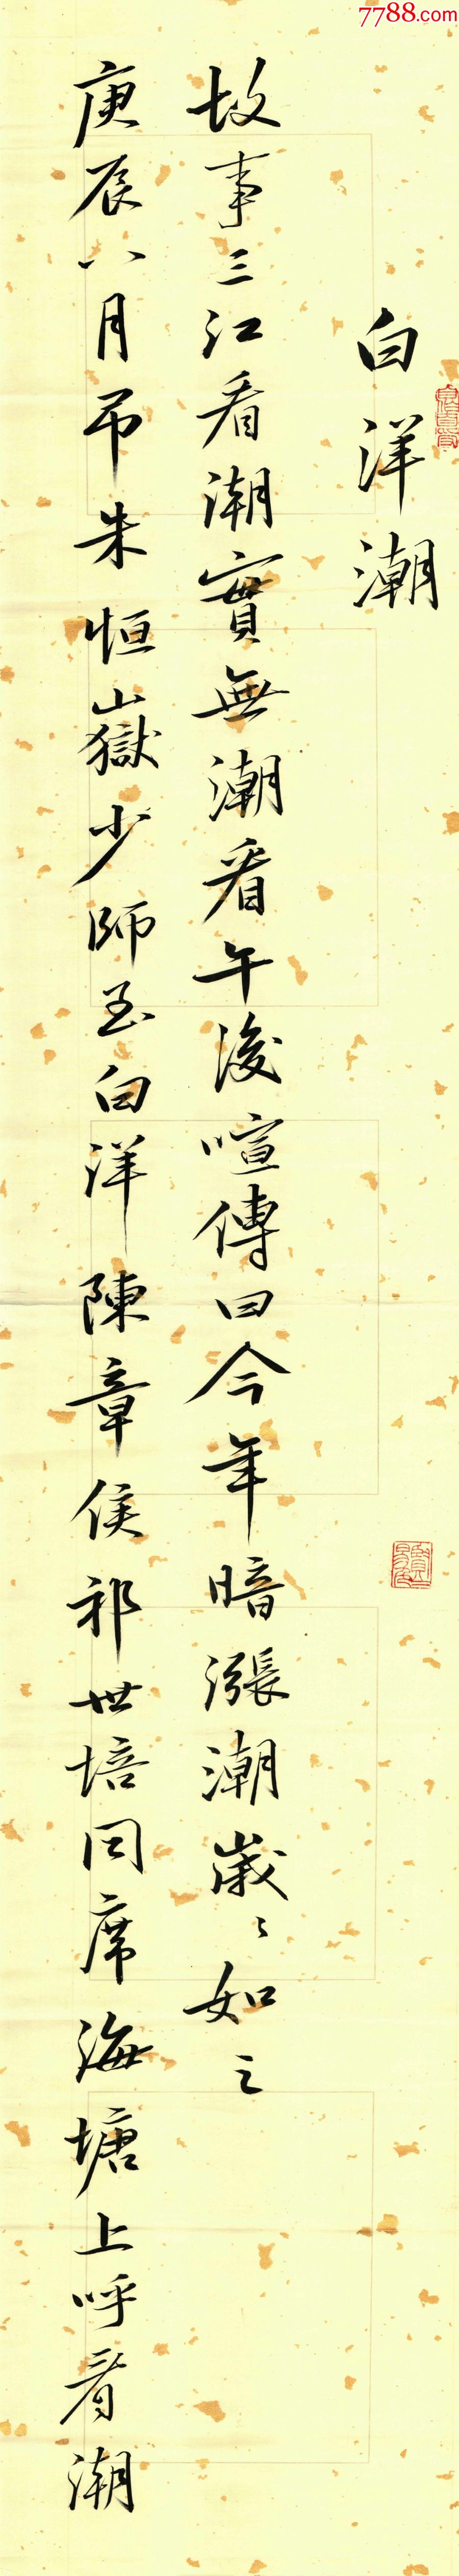 7788.com
白洋潮
故事三江看潮實無潮看午後喧傳曰今年暗漲潮歲〻如之
庚辰八月吊朱恒嶽少師至白洋陳章侯祁世培同席海塘上呼看潮